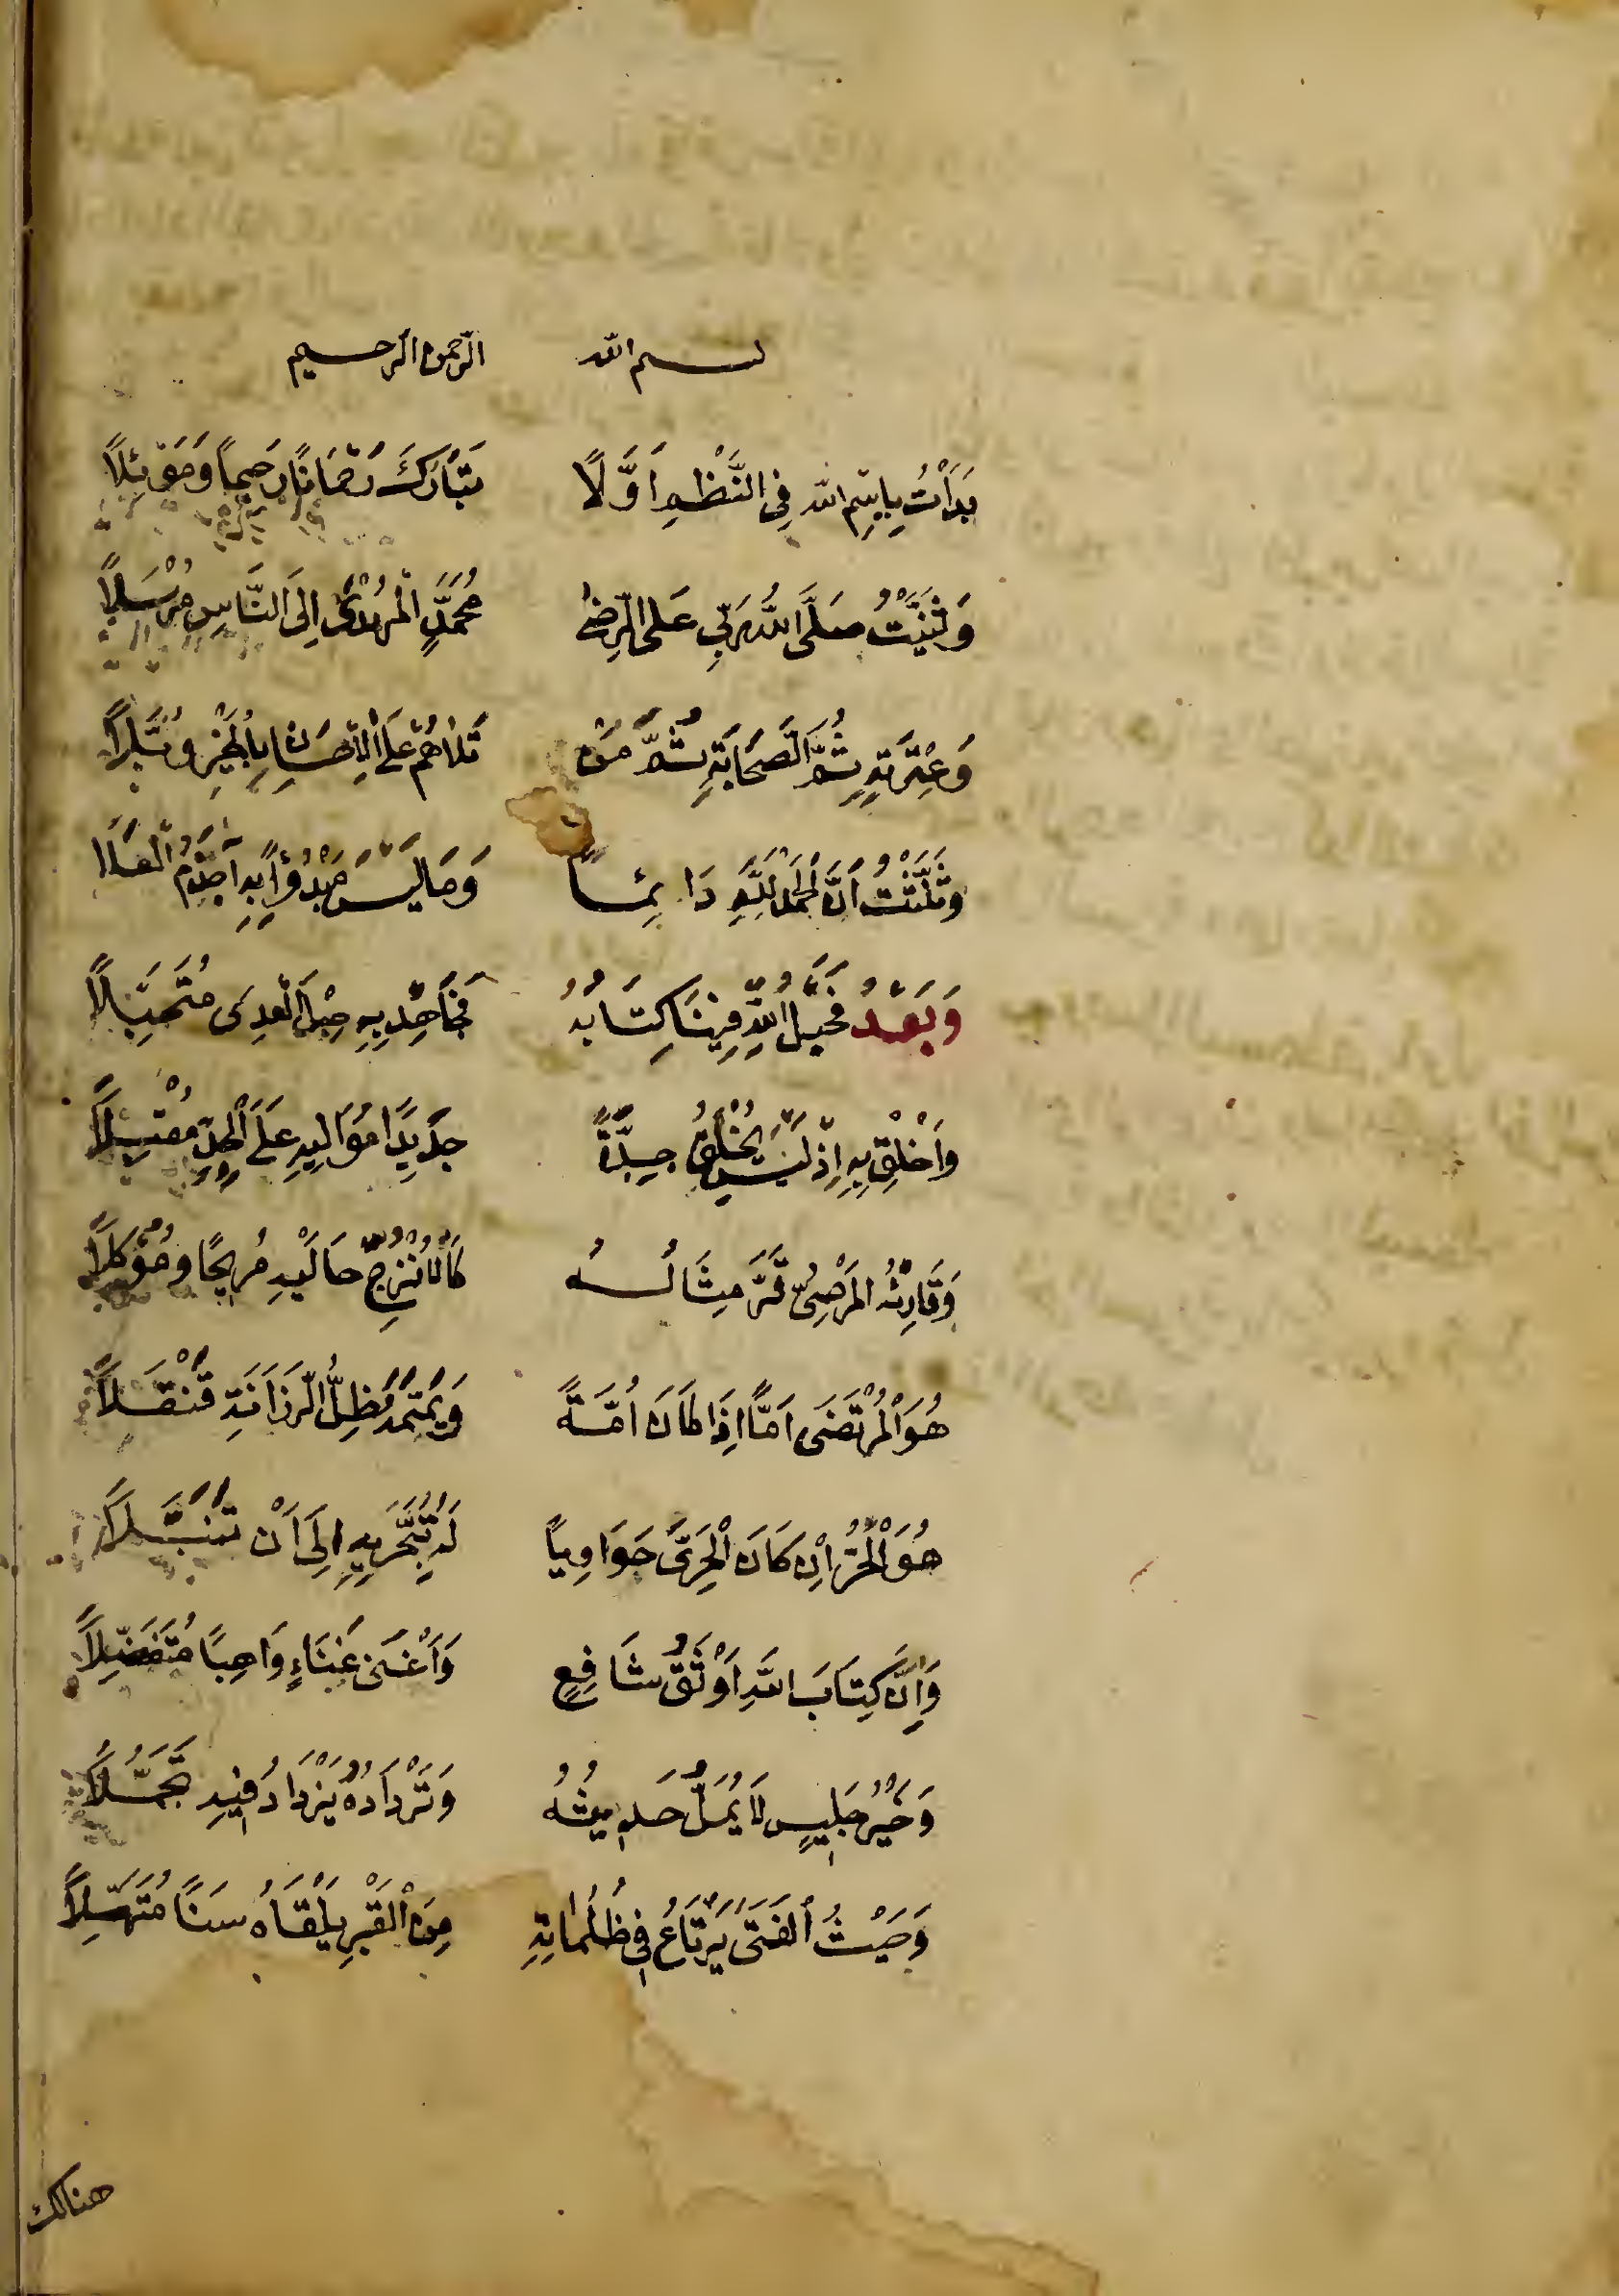 بسم الله الرحمن الرحيم
بَدَأْتُ بِبِسْمِ اللهِ فِي النَّظْمِ أَوَّلًا تَبَارَكَ رَحْمَانًا رَحِيمًا وَمَوْئِلًا
وَثَنَّيْتُ صَلَّى اللهُ رَبِّي عَلَى الرِّضَى مُحَمَّدٍ الْمُهْدَى إِلَى النَّاسِ مُرْسَلًا
وَعِتْرَتِهِ ثُمَّ الصَّحَابَةِ ثُمَّ مَنْ تَلَاهُمْ عَلَى الْإِحْسَانِ بِالْخَيْرِ وُبَّلًا
وَثَلَّثْتُ أَنَّ الْحَمْدَ لِلَّهِ دَائِمًا وَمَا لَيْسَ مَبْدُوءًا بِهِ أَجْذَمُ الْعَلَا
وَبَعْدُ فَحَبْلُ اللهِ فِينَا كِتَابُهُ فَجَاهِدْ بِهِ حِبْلَ الْعِدَى مُتَحَبِّلًا
وَأَخْلِقْ بِهِ إِذْ لَيْسَ يَخْلُقُ جِدَّةً جَدِيدًا مُوَالِيهِ عَلَى الْجِدِّ مُقْبِلًا
وَقَارِئُهُ الْمَرْضِيُّ قَرَّ مِثَالُهُ كَالْأُتْرُجِّ حَالَيْهِ مُرِيحًا وَمُؤْكِلًا
هُوَ الْمُرْتَضَى أَمًّا إِذَا كَانَ أُمَّةً وَيَمَّمَهُ ظِلُّ الرَّزَانَةِ قَنْقَلًا
هُوَ الْحُرُّ إِنْ كَانَ الْحَرِيَّ حَوَارِيًا لَهُ بِتَحَرِّيهِ إِلَى أَنْ تَنَبَّلَا
وَإِنَّ كِتَابَ اللهِ أَوْثَقُ شَافِعٍ وَأَغْنَى غَنَاءٍ وَاهِبًا مُتَفَضِّلًا
وَخَيْرُ جَلِيسٍ لَا يُمَلُّ حَدِيثُهُ وَتَرْدَادُهُ يَزْدَادُ فِيهِ تَجَمُّلًا
وَحَيْثُ الْفَتَى يَرْتَاعُ فِي ظُلُمَاتِهِ مِنَ الْقَبْرِ يَلْقَاهُ سَنًا مُتَهَلِّلًا
هنالك